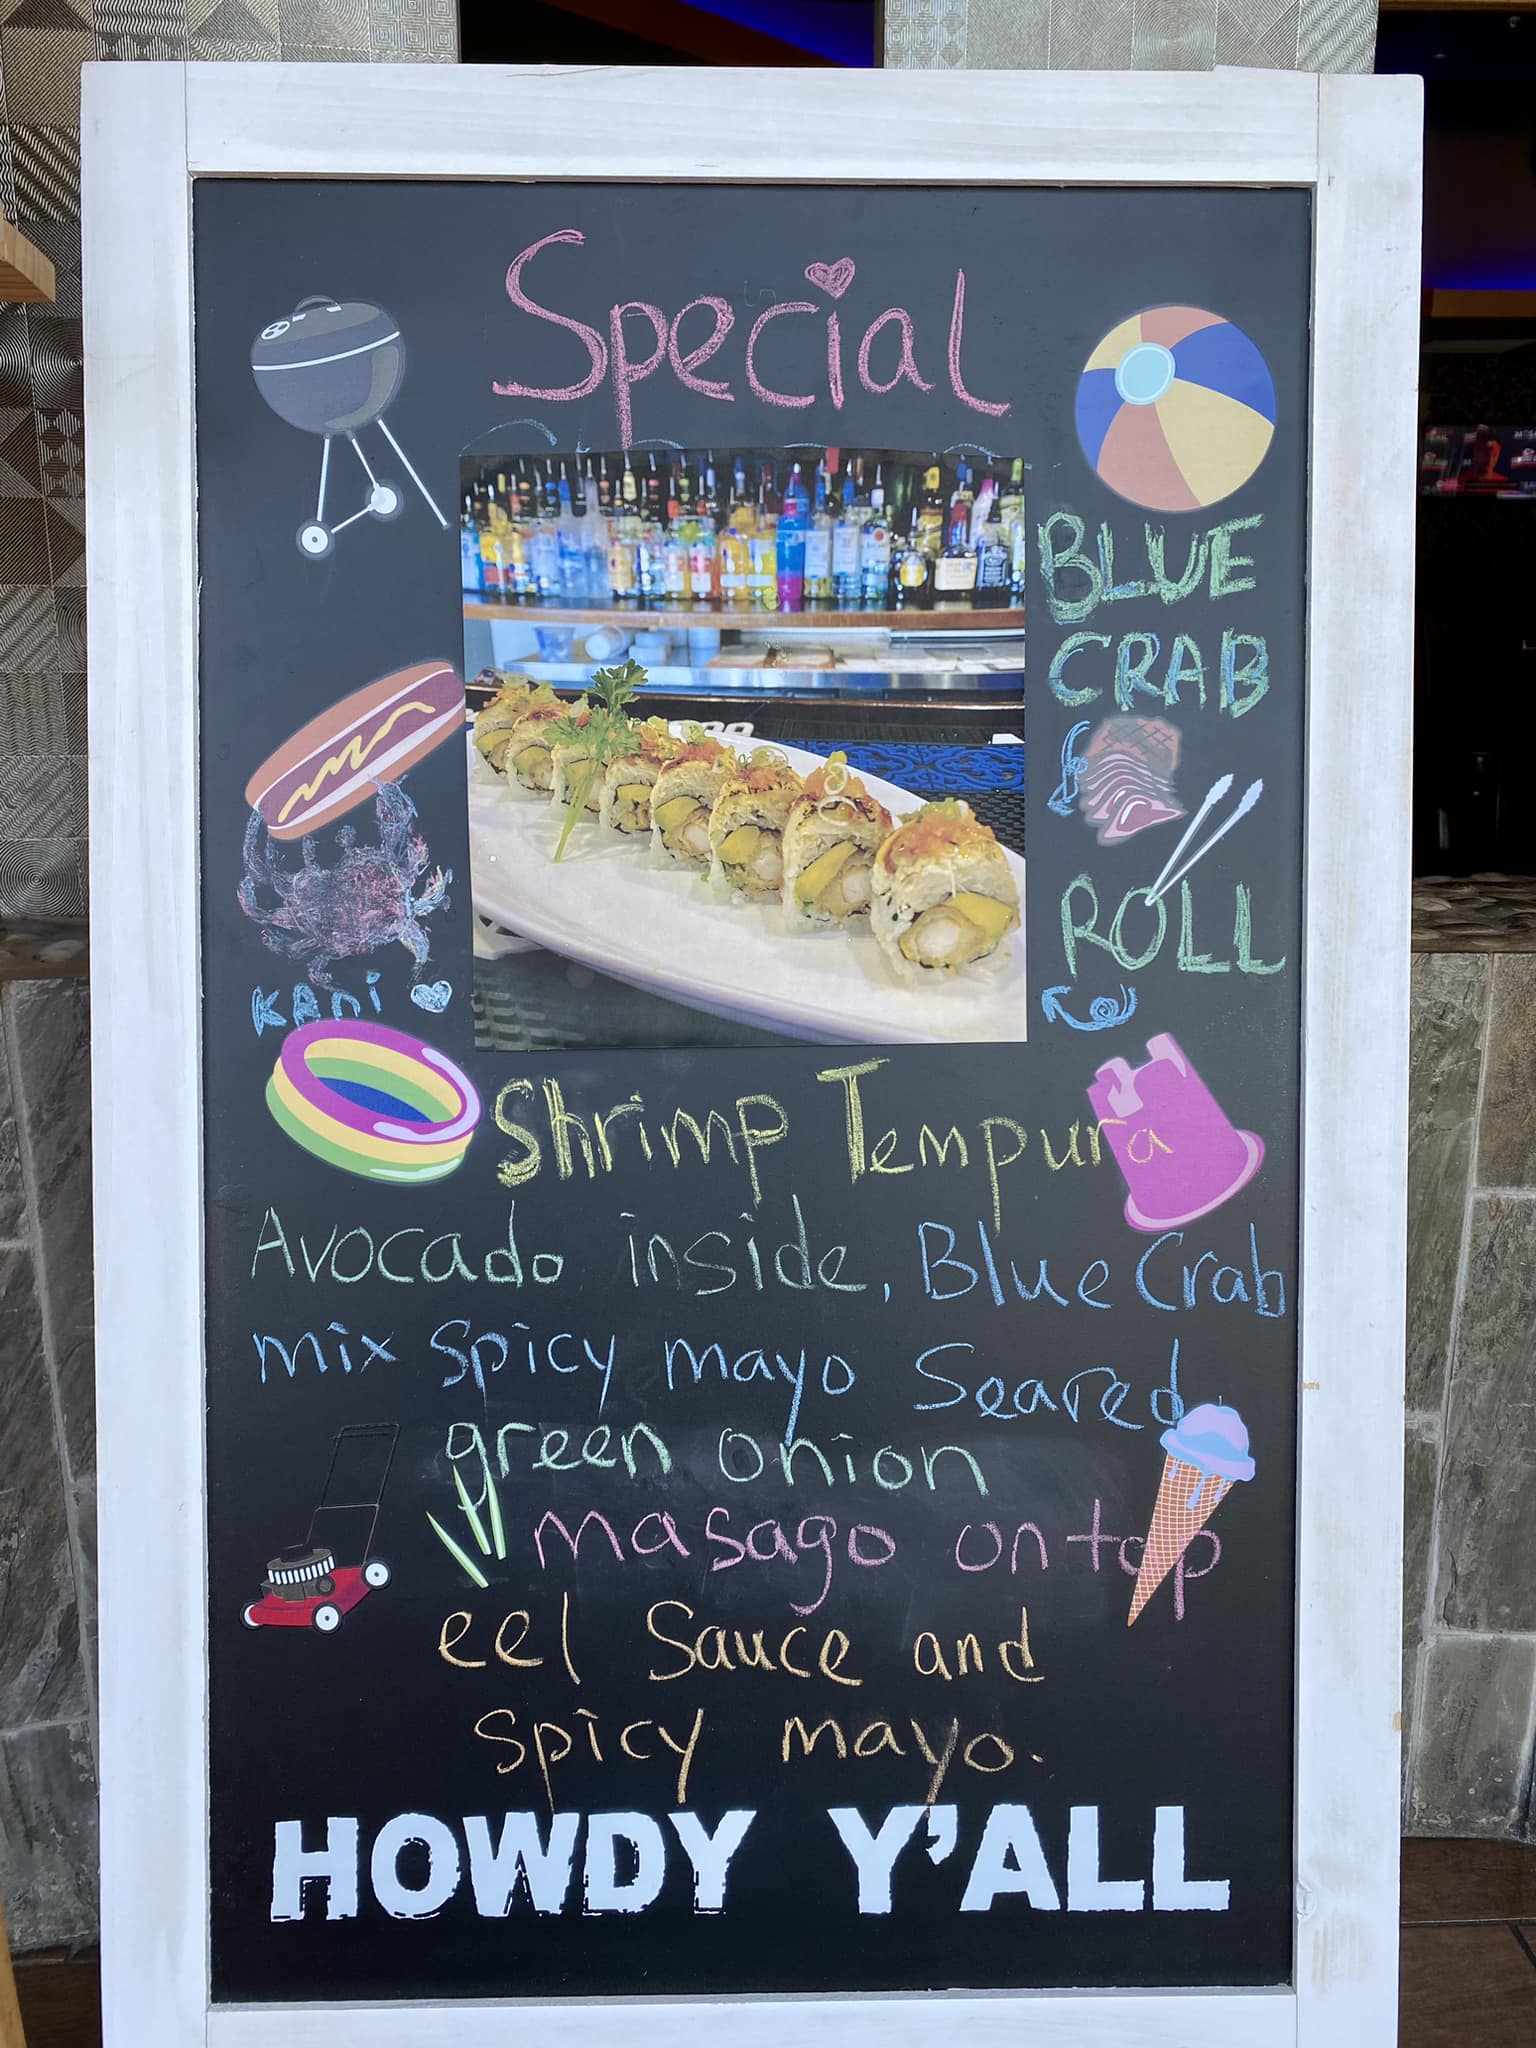 Special
BLUE
CRAB
ROLL
KANi
Shrimp Tempura
Avocado inside, Blue Crab
mix spicy mayo Seared
green onion
masago on top
eel Sauce and
spicy mayo.
HOWDY Y'ALL